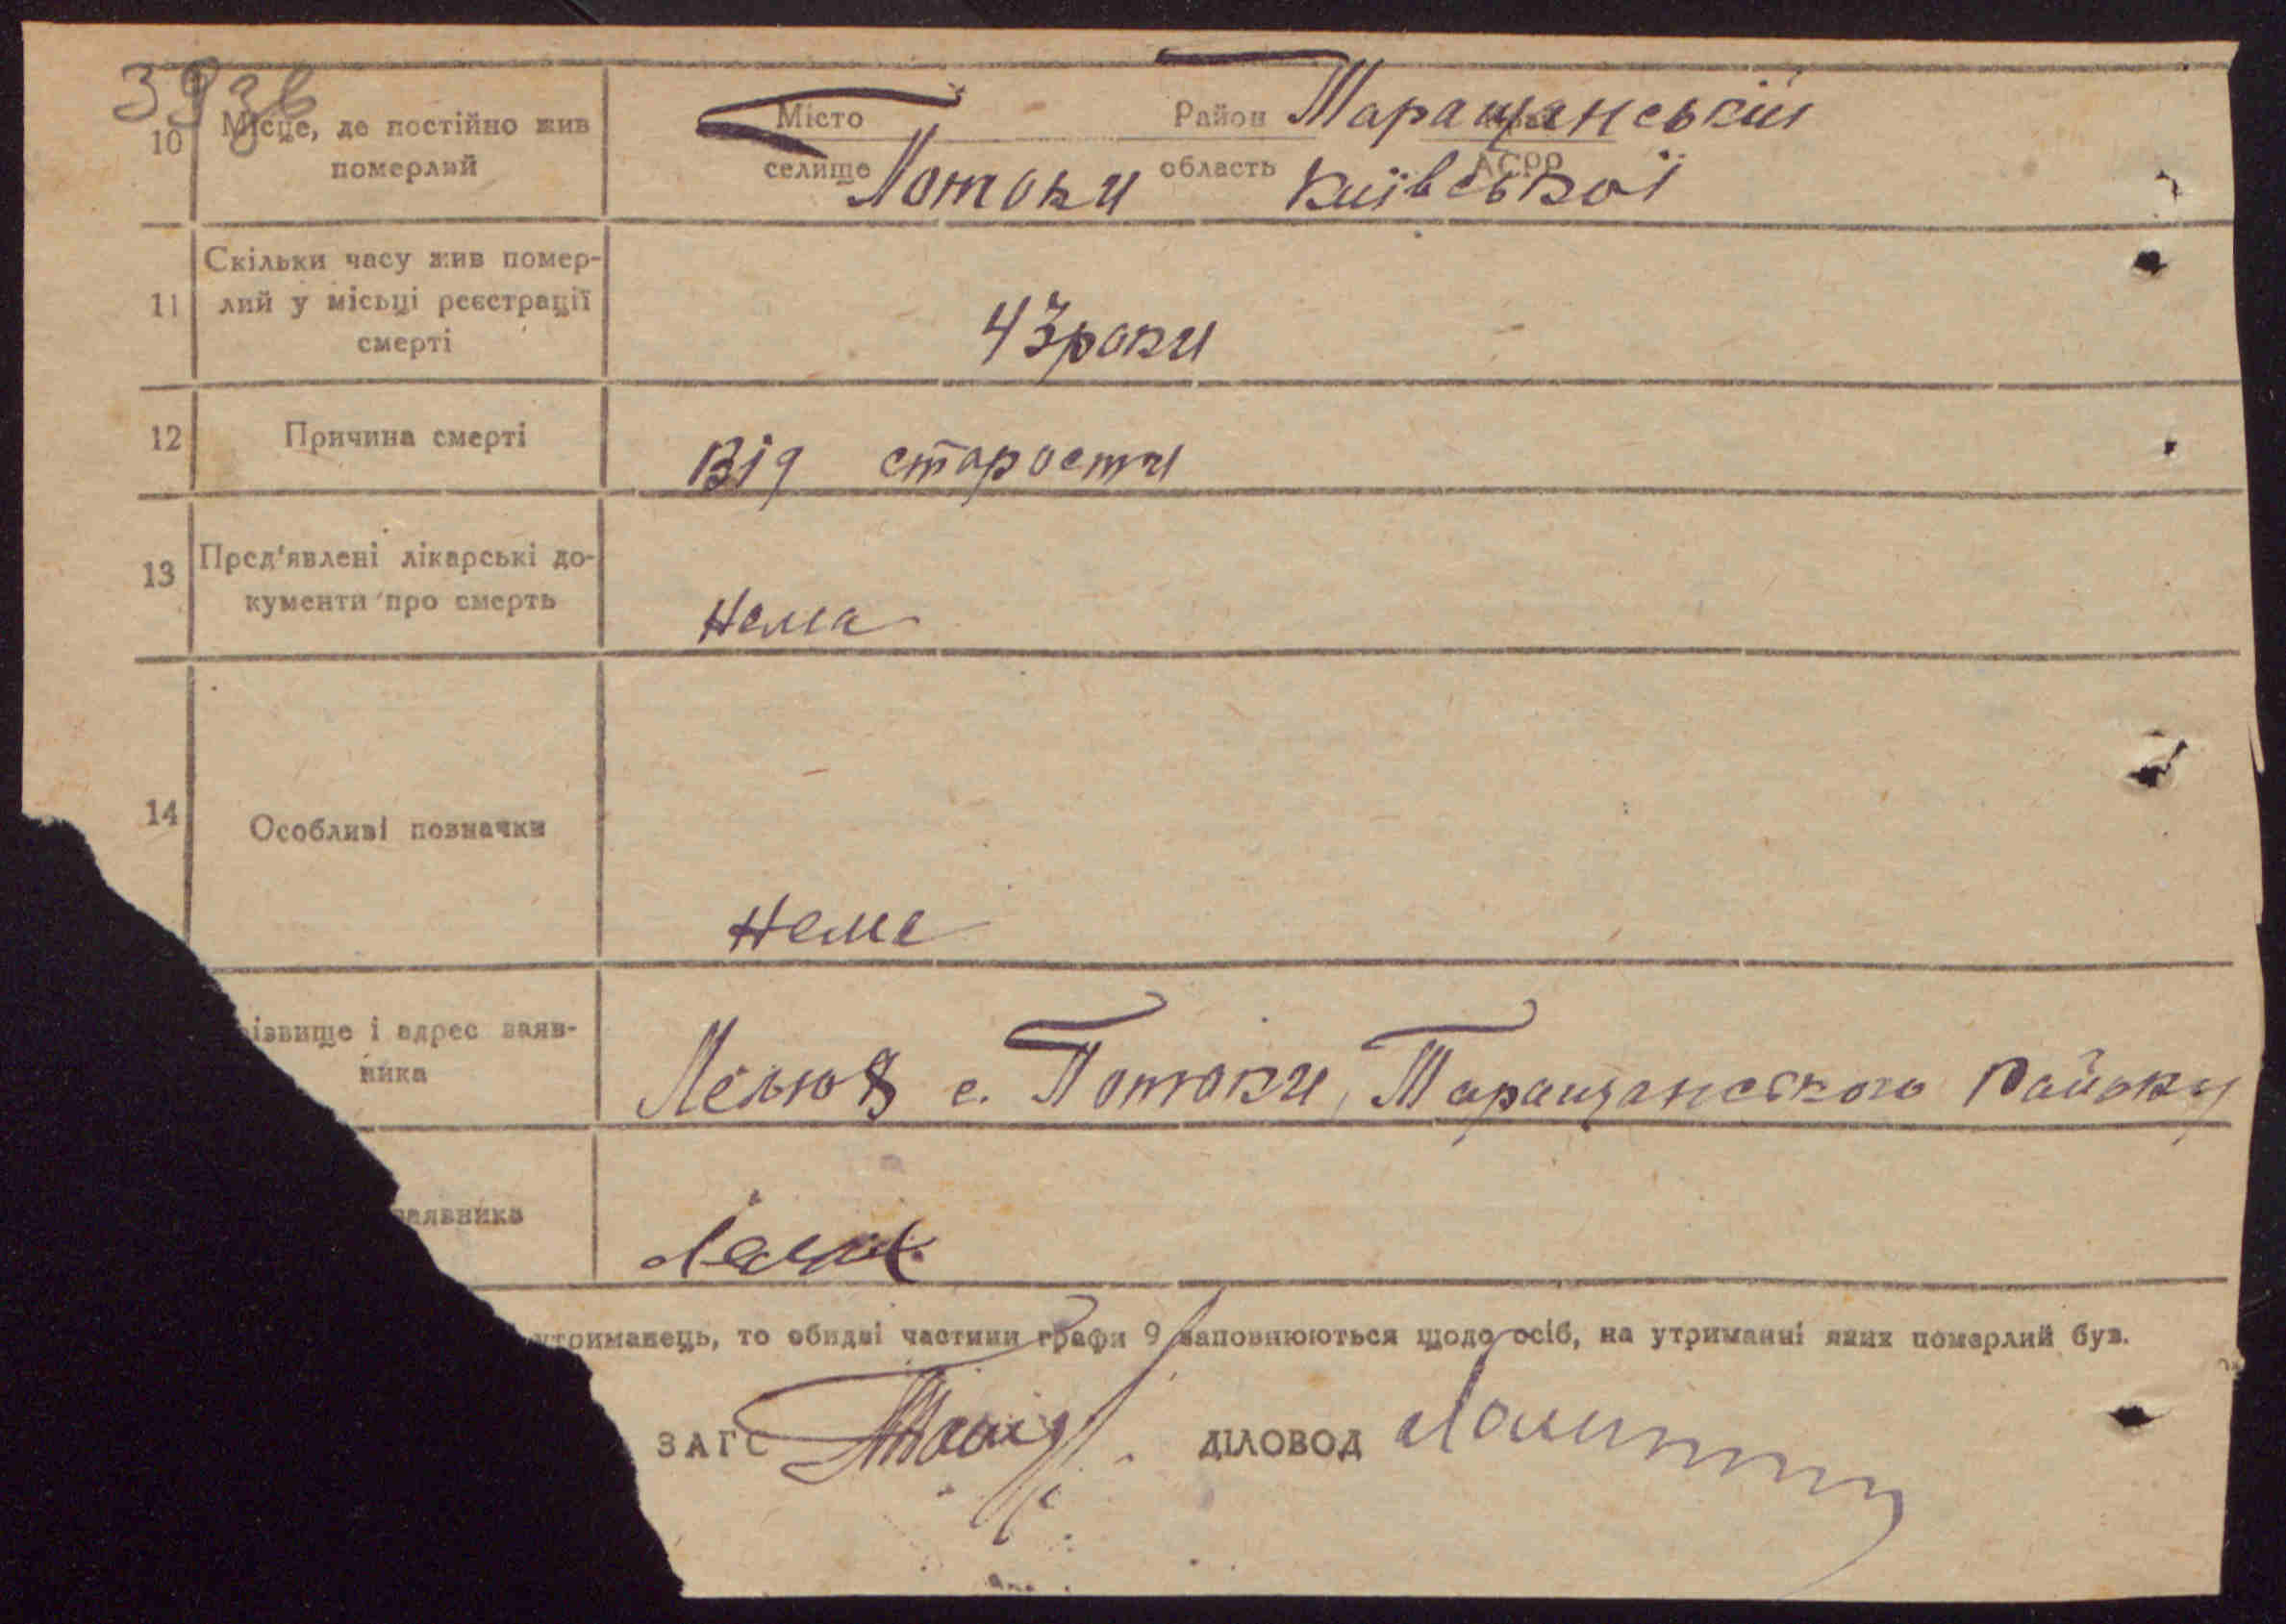 39зв
10 Місце, де постійно жив
померлий
Місто Район Таращанський
селище Потоки область Київської АСРР
11 Скільки часу жив помер-
лий у місьці реєстрації
смерті
43 роки
12 Причина смерті
Від старости
13 Пред'явлені лікарські до-
кументи про смерть
Нема
14 Особливі позначки
Нема
ізвище і адрес заяв-
ника
с. Потоки, Таращанського Району
заявника
утриманець, то обидві частини графи 9 заповнюються щодо осіб, на утриманні яких померлий був.
ЗАГС ДІЛОВОД